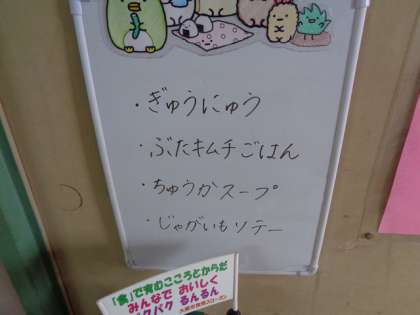 ・ぎゅうにゅう
・ぶたキムチごはん
・ちゅうかスープ
・じゃがいもソテー
「食」で育むこころとからだ
みんなで おいしく
パクパク るんるん